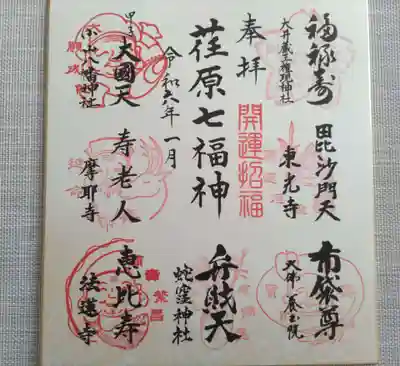 福禄寿
大井蔵王権現神社
毘沙門天
東光寺
布袋尊
大井 養玉院
奉拝
開運招福
弁財天
蛇窪神社
荏原七福神
令和六年一月
大國天
小山八幡神社
寿老人
摩耶寺
恵比寿
法蓮寺